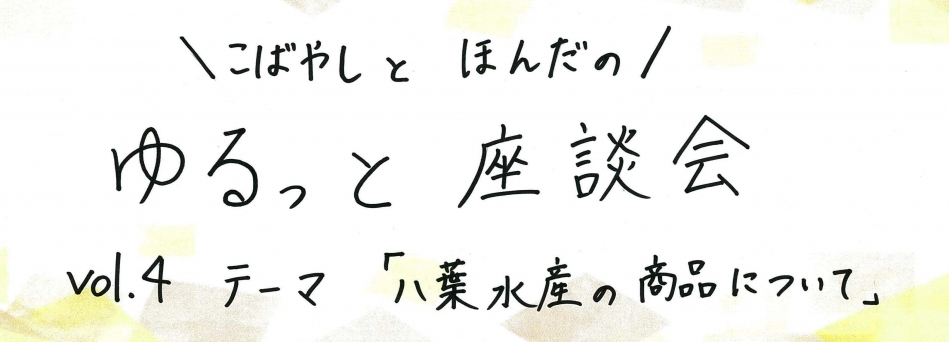 \こばやしと ほんだの/
ゆるっと 座談会
vol.4 テーマ 「八葉水産の商品について」